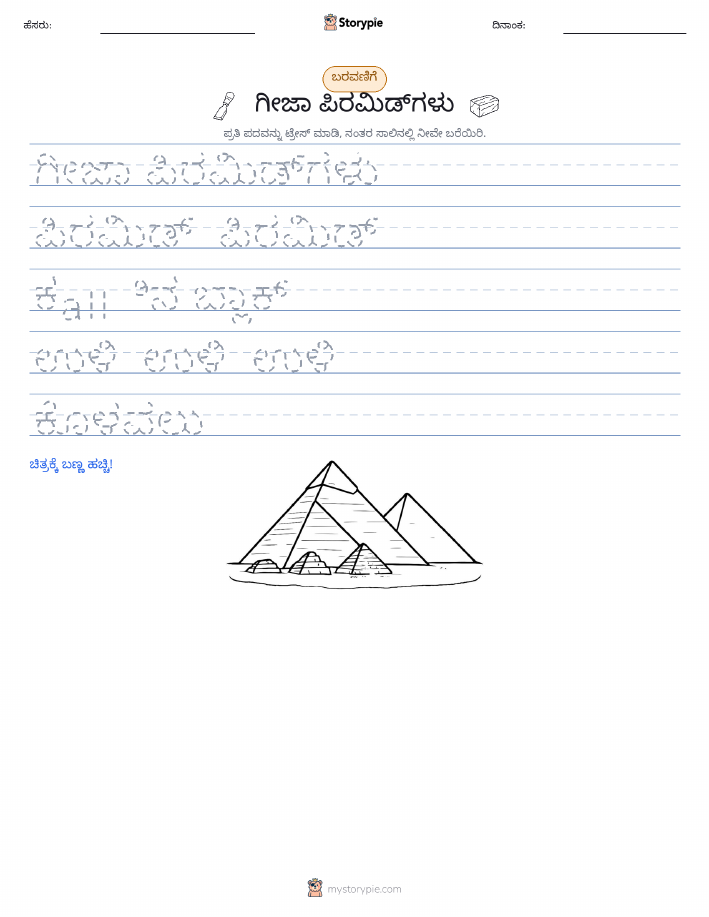 ಹೆಸರು:
Storypie
ದಿನಾಂಕ:
ಬರವಣಿಗೆ
ಗೀಜಾ ಪಿರಮಿಡ್‌ಗಳು
ಪ್ರತಿ ಪದವನ್ನು ಟ್ರೇಸ್ ಮಾಡಿ, ನಂತರ ಸಾಲಿನಲ್ಲಿ ನೀವೇ ಬರೆಯಿರಿ.
ಗೀಜಾ ಪಿರಮಿಡ್‌ಗಳು
ಪಿರಮಿಡ್ ಪಿರಮಿಡ್
ಬ್ಲಾಕ್
ಉಳಿ ಉಳಿ ಉಳಿ
ಚಿತ್ರಕ್ಕೆ ಬಣ್ಣ ಹಚ್ಚಿ!
mystorypie.com